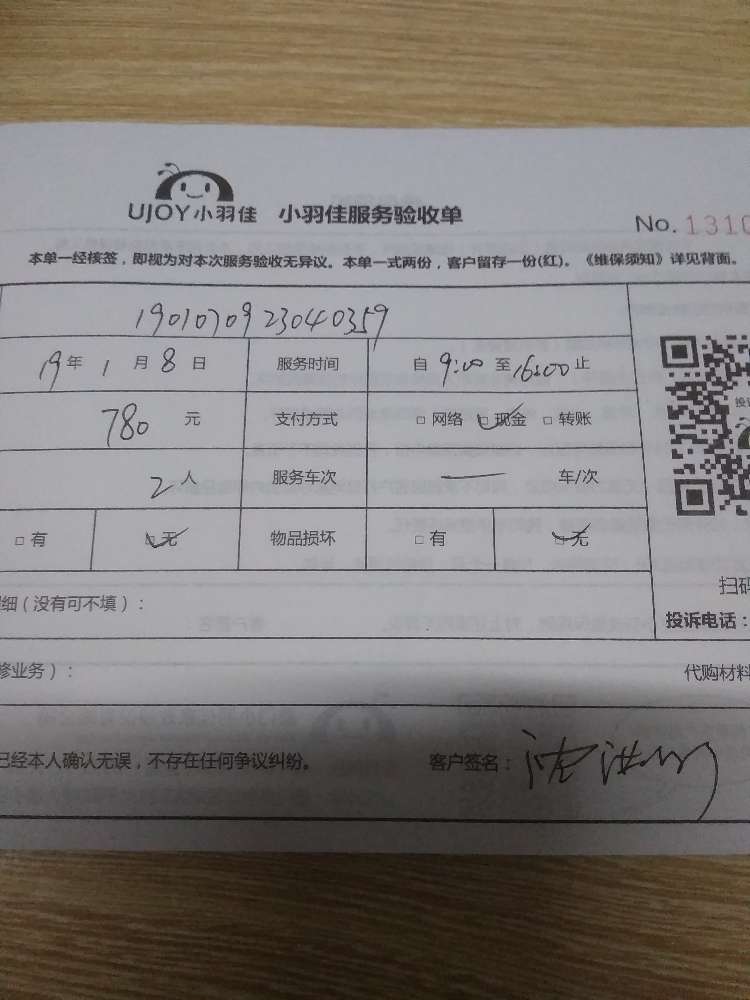 UJOY小羽佳 小羽佳服务验收单
No. 1310
本单一经核签，即视为对本次服务验收无异议。本单一式两份，客户留存一份(红)。《维保须知》详见背面。
1901070923040359
19年1月8日 服务时间 自9:00至16:00止
780元 支付方式 □网络 □现金 □转账
2人 服务车次 — 车/次
□有 □无 物品损坏 □有 □无
扫码
细（没有可不填）：
投诉电话：
修业务）：
代购材料
已经本人确认无误，不存在任何争议纠纷。 客户签名：